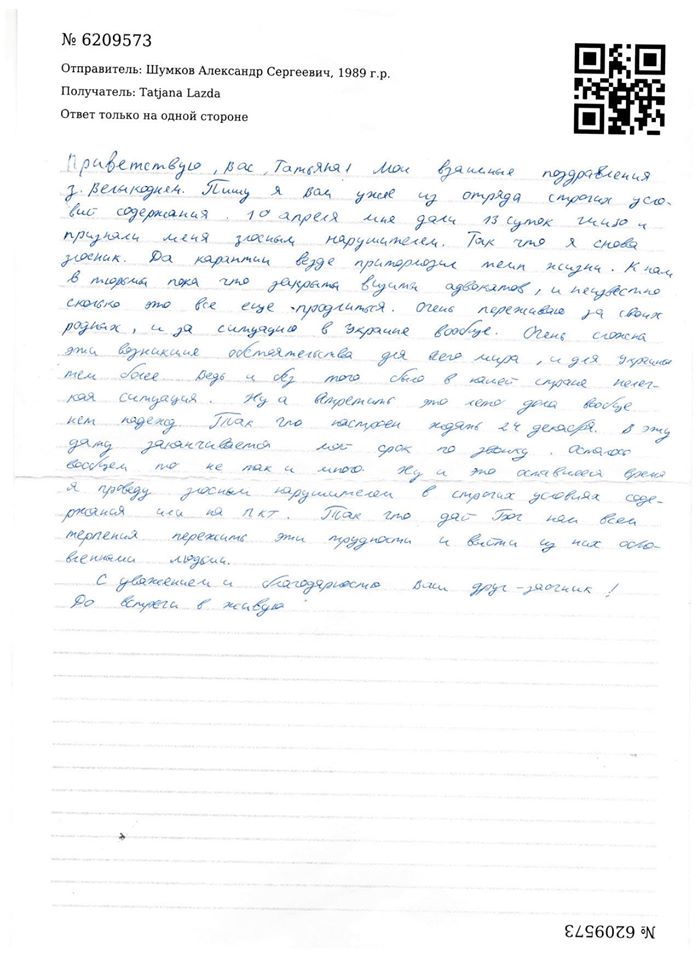 № 6209573
Отправитель: Шумков Александр Сергеевич, 1989 г.р.
Получатель: Tatjana Lazda
Ответ только на одной стороне
Приветствую, Вас, Татьяна! Мои взаимные поздравления
з. Великоднем. Пишу я Вам уже из отряда строгих усло-
вий содержания. 10 апреля мне дали 13 суток шизо и
признали меня злосным нарушителем. Так что я снова
злосник. Да карантин везде притормозил темп жизни. К нам
в тюрьмы пока что закрыты визиты адвокатов, и неизвестно
сколько это все еще продлиться. Очень переживаю за своих
родных, и за ситуацию в Украине вообще. Очень сложна
эти возникшие обстоятельства для всего мира, и для Украины
тем более. Ведь и без того была в нашей стране нелег-
кая ситуация. Ну а встретить это лето дома вообще
нет надежд. Так что настроен ждать 24 декабря. В эту
дату заканчивается мой срок по звонку. Осталось
вообщем то не так и много. Ну и это оставшееся время
я проведу злосным нарушителем в строгих условиях соде-
ржания или на ПКТ. Так что дай Бог нам всем
терпения пережить эти трудности и выйти из них
людьми.
С уважением и благодарностю Ваш друг-заочник!
До встречи в живую
№ 6209573